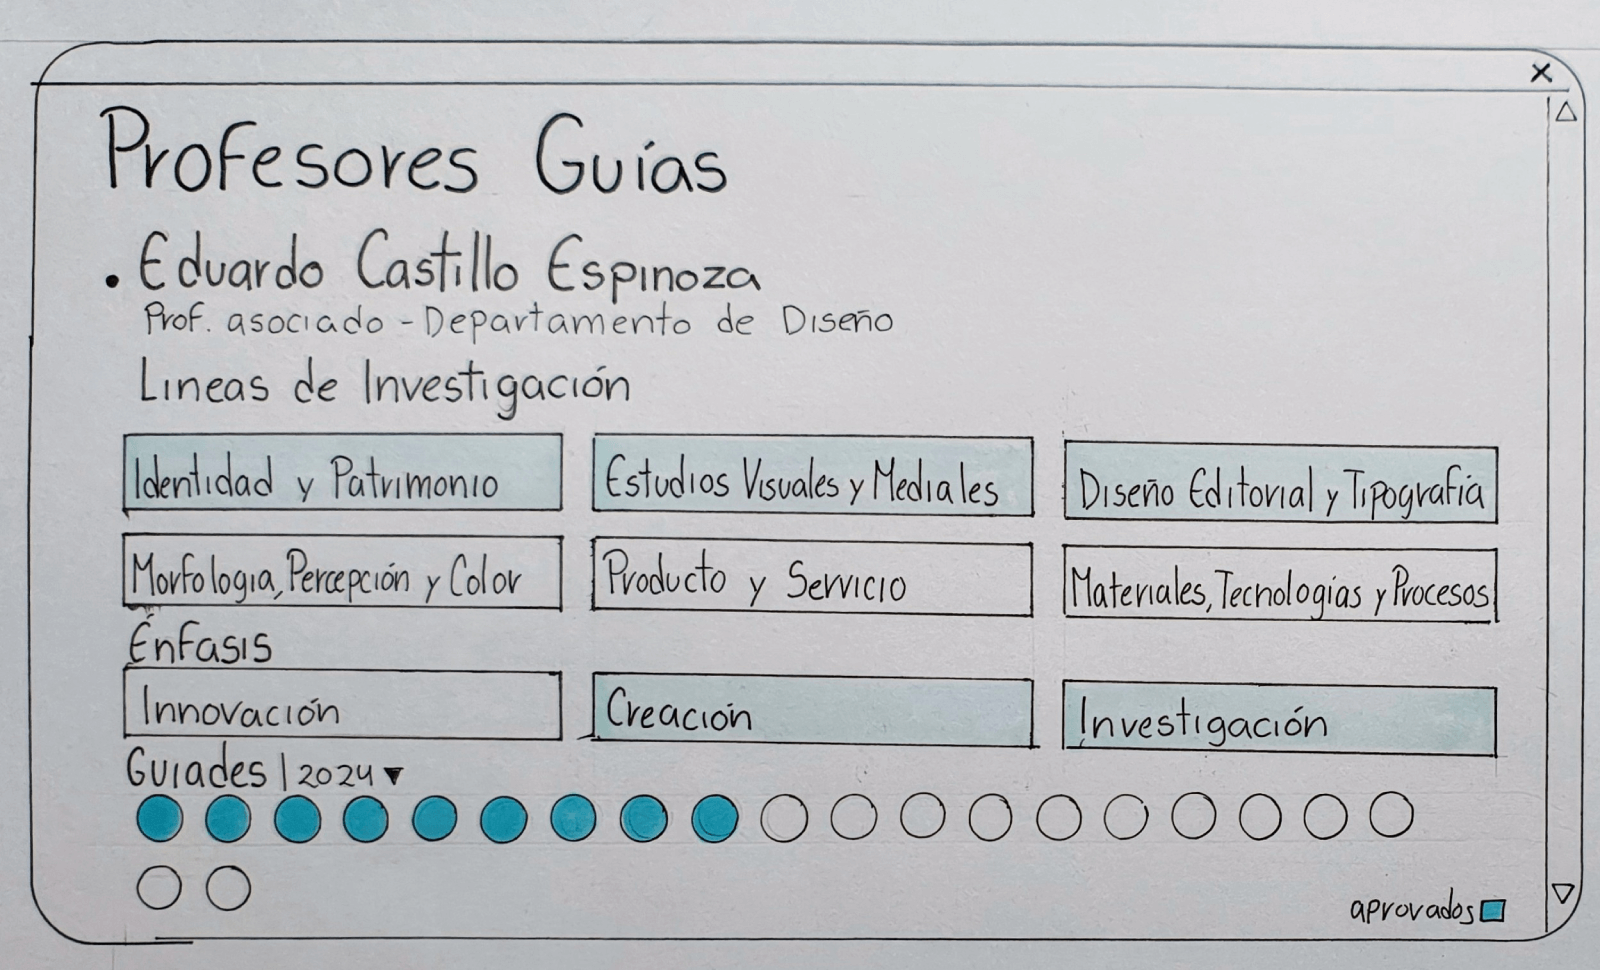 Profesores Guías
. Eduardo Castillo Espinoza
Prof. asociado - Departamento de Diseño
Lineas de Investigación
Identidad y Patrimonio
Estudios Visuales y Mediales
Diseño Editorial y Tipografía
Morfologia, Percepción y Color
Producto y Servicio
Materiales, Tecnologías y Procesos
Énfasis
Innovación
Creación
Investigación
Guiades | 2024 ▼
aprovados